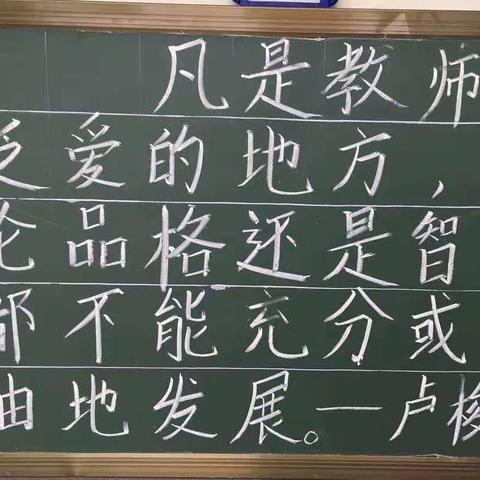 凡是教师
乏爱的地方，
论品格还是智
都不能充分或
由地发展。—卢梭